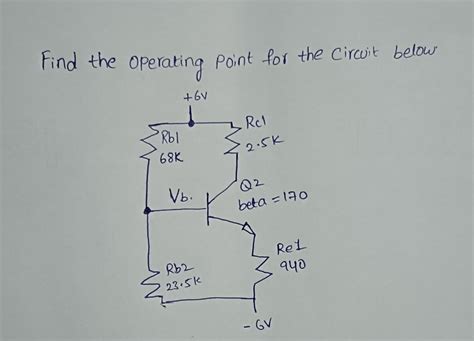 Find the operating point for the circuit below
+6V
Rb1
68K
Rc1
2.5K
Vb.
Q2
beta = 170
Rb2
23.5K
Re1
940
- 6V